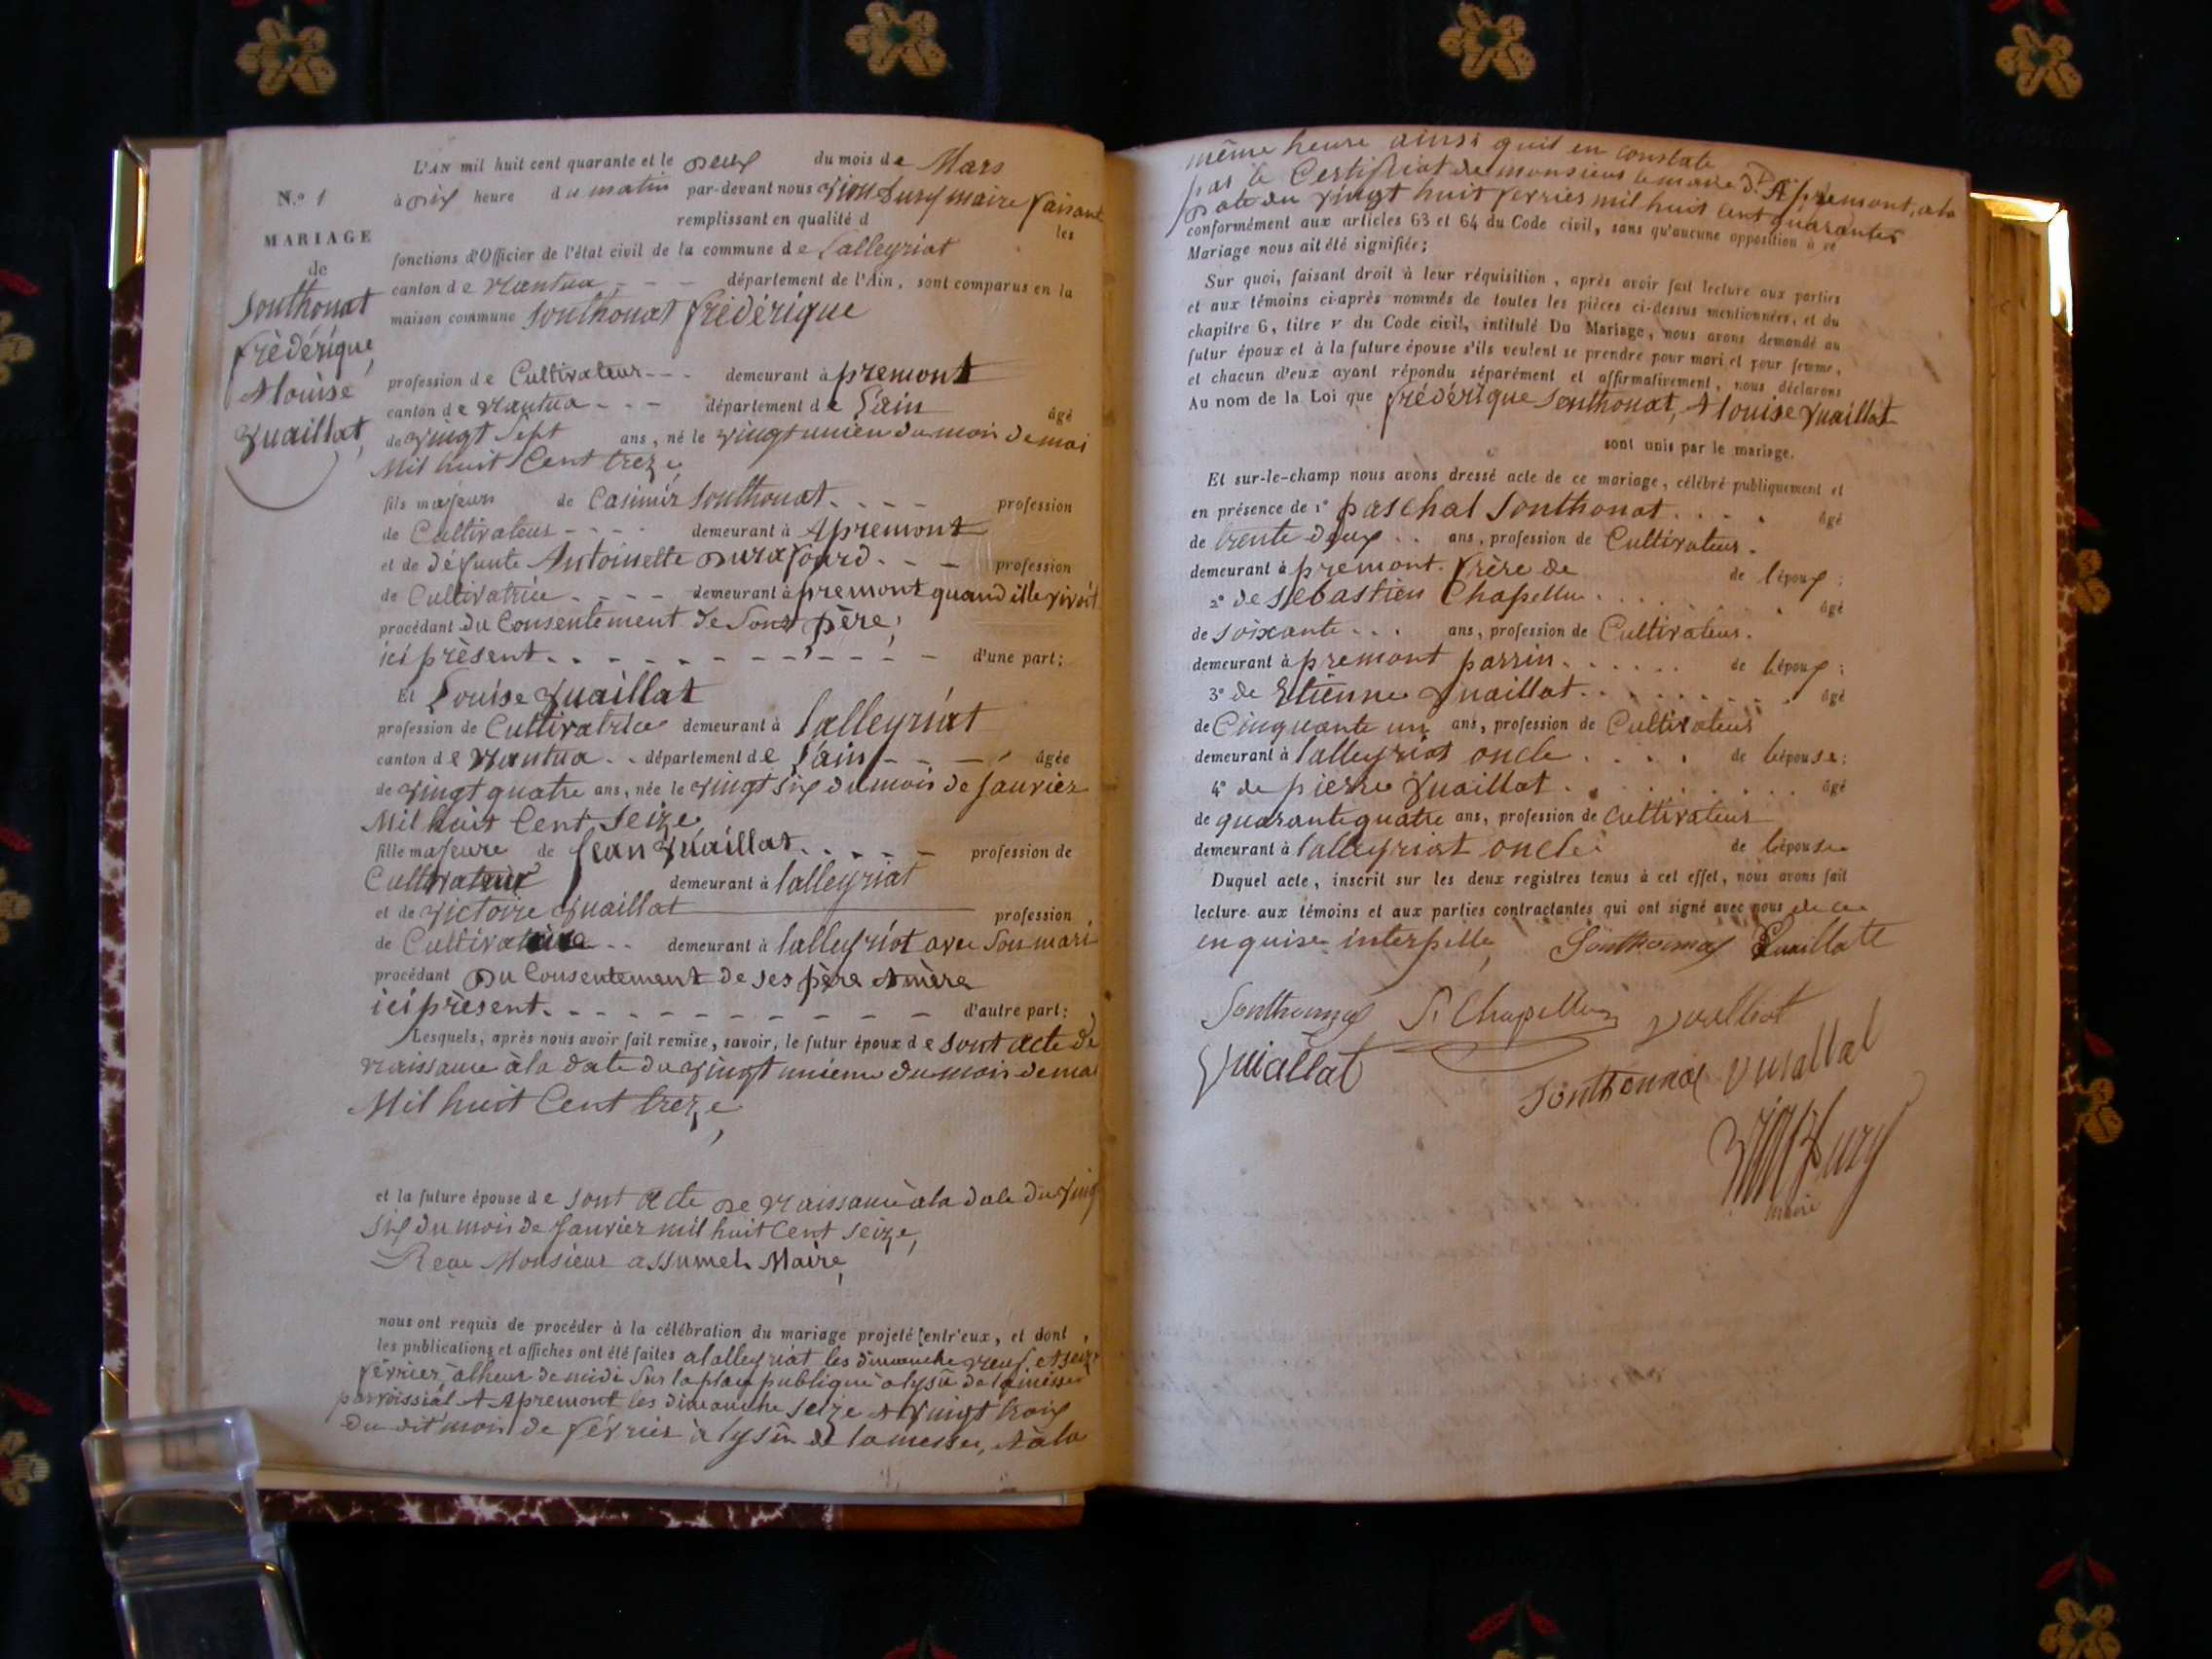 N.° 1
MARIAGE
de
Sonthonat
frédérique,
& louise
Vuaillat,
L'AN mil huit cent quarante et le Deux du mois de Mars
à Dix heure du matin par-devant nous Vion Dury maire faisant
remplissant en qualité d les
fonctions d'Officier de l'état civil de la commune de lalleyriat
canton de Nantua département de l'Ain, sont comparus en la
maison commune Sonthonat frédérique
profession de Cultivateur demeurant à premont
canton de Nantua département de L'ain âgé
de vingt Sept ans, né le vingt unieu du mois de mai
Mil huit Cent treize
fils majeur de Casimir Sonthonat profession
de Cultivateur demeurant à Apremont
et de défunte Antoinette Durafourd profession
de Cultivatrice demeurant à premont quand elle vivoit
procédant Du Consentement de Sont père,
ici prèsent d'une part;
Et Louise Vuaillat
profession de Cultivatrice demeurant à lalleyriat
canton de Nantua département de L'ain âgée
de vingt quatre ans, née le vingt six du mois de Janvier
Mil huit Cent Seize
fille majeure de Jean Vuaillat profession de
Cultivateur demeurant à lalleyriat
et de Victoire Vuaillat profession
de Cultivatrice demeurant à lalleyriat avec Son mari
procédant Du Consentement de ses père & mère
ici prèsent d'autre part;
Lesquels, après nous avoir fait remise, savoir, le futur époux de Sont Acte de
Naissance à la Date du vingt unieme du mois de mai
Mil huit Cent treize,
et la future épouse de Sont Acte De Naissance à la Date du vingt
Six du mois de Janvier mil huit Cent Seize,
Reçu Monsieur assumel Maire,
nous ont requis de procéder à la célébration du mariage projeté entr'eux, et dont
les publications et affiches ont été faites a lalleyriat les dimanche Neuf & Seize
février, à lheur de midi Sur la place publique à lysû de la messe
parroissial & Apremont les dimanche Seize & vingt trois
du dit mois de février à lysû de la messe, & à la
même heure ainsi quil en constate
par le Certificat de monsieur le maire D'Apremont, à la
Date du vingt huit février mil huit cent quarante
conformément aux articles 63 et 64 du Code civil, sans qu'aucune opposition à ce
Mariage nous ait été signifiée;
Sur quoi, faisant droit à leur réquisition, après avoir fait lecture aux parties
et aux témoins ci-après nommés de toutes les pièces ci-dessus mentionnées, et du
chapitre 6, titre v du Code civil, intitulé Du Mariage, nous avons demandé au
futur époux et à la future épouse s'ils veulent se prendre pour mari et pour femme,
et chacun d'eux ayant répondu séparément et affirmativement, nous déclarons
Au nom de la Loi que frédérique Sonthonat, & louise Vuaillat
sont unis par le mariage.
Et sur-le-champ nous avons dressé acte de ce mariage, célébré publiquement et
en présence de 1° paschal Sonthonat âgé
de trente deux ans, profession de Cultivateur.
demeurant à premont. frère de de l'époux;
2° de Sébastien Chapellu âgé
de Soixante ans, profession de Cultivateur.
demeurant à premont parrin de l'époux;
3° de Etienne Vuaillat âgé
de Cinquante un ans, profession de Cultivateur
demeurant à lalleyriat oncle de l'épouse;
4° de pierre Vuaillat âgé
de quarante quatre ans, profession de Cultivateur
demeurant à lalleyriat oncle de l'épouse
Duquel acte, inscrit sur les deux registres tenus à cet effet, nous avons fait
lecture aux témoins et aux parties contractantes qui ont signé avec nous de ce
enquise interpelle, Sonthonnax Vuaillatt
Sonthonnax S. Chapellu Vuaillat
Vuiallat
Sonthonnax Vuiallat
Vion Dury
maire